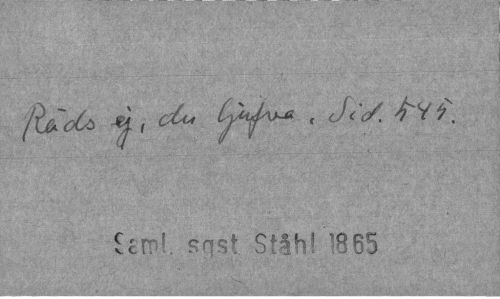 Räds ej, du ljufva. Sid. 545.
Saml. sgst Ståhl 1865